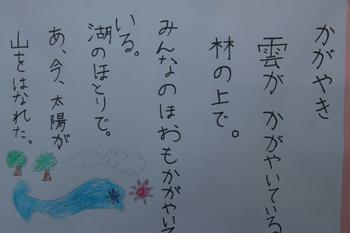 かがやき
雲が かがやいている。
林の上で。
みんなのほおもかがやいて
いる。
湖のほとりで。
あ、今、太陽が
山をはなれた。